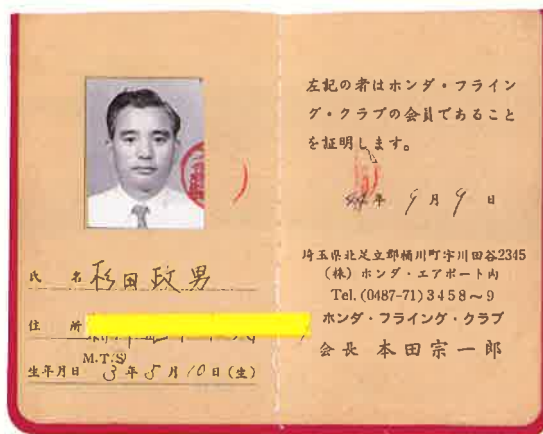 氏 名 杉田政男
住 所
M.T.S
生年月日 3年5月10日(生)
左記の者はホンダ・フライン
グ・クラブの会員であること
を証明します。
年 9月 9日
埼玉県北足立郡桶川町字川田谷2345
(株) ホンダ・エアポート内
Tel. (0487-71) 3458〜9
ホンダ・フライング・クラブ
会長 本田宗一郎